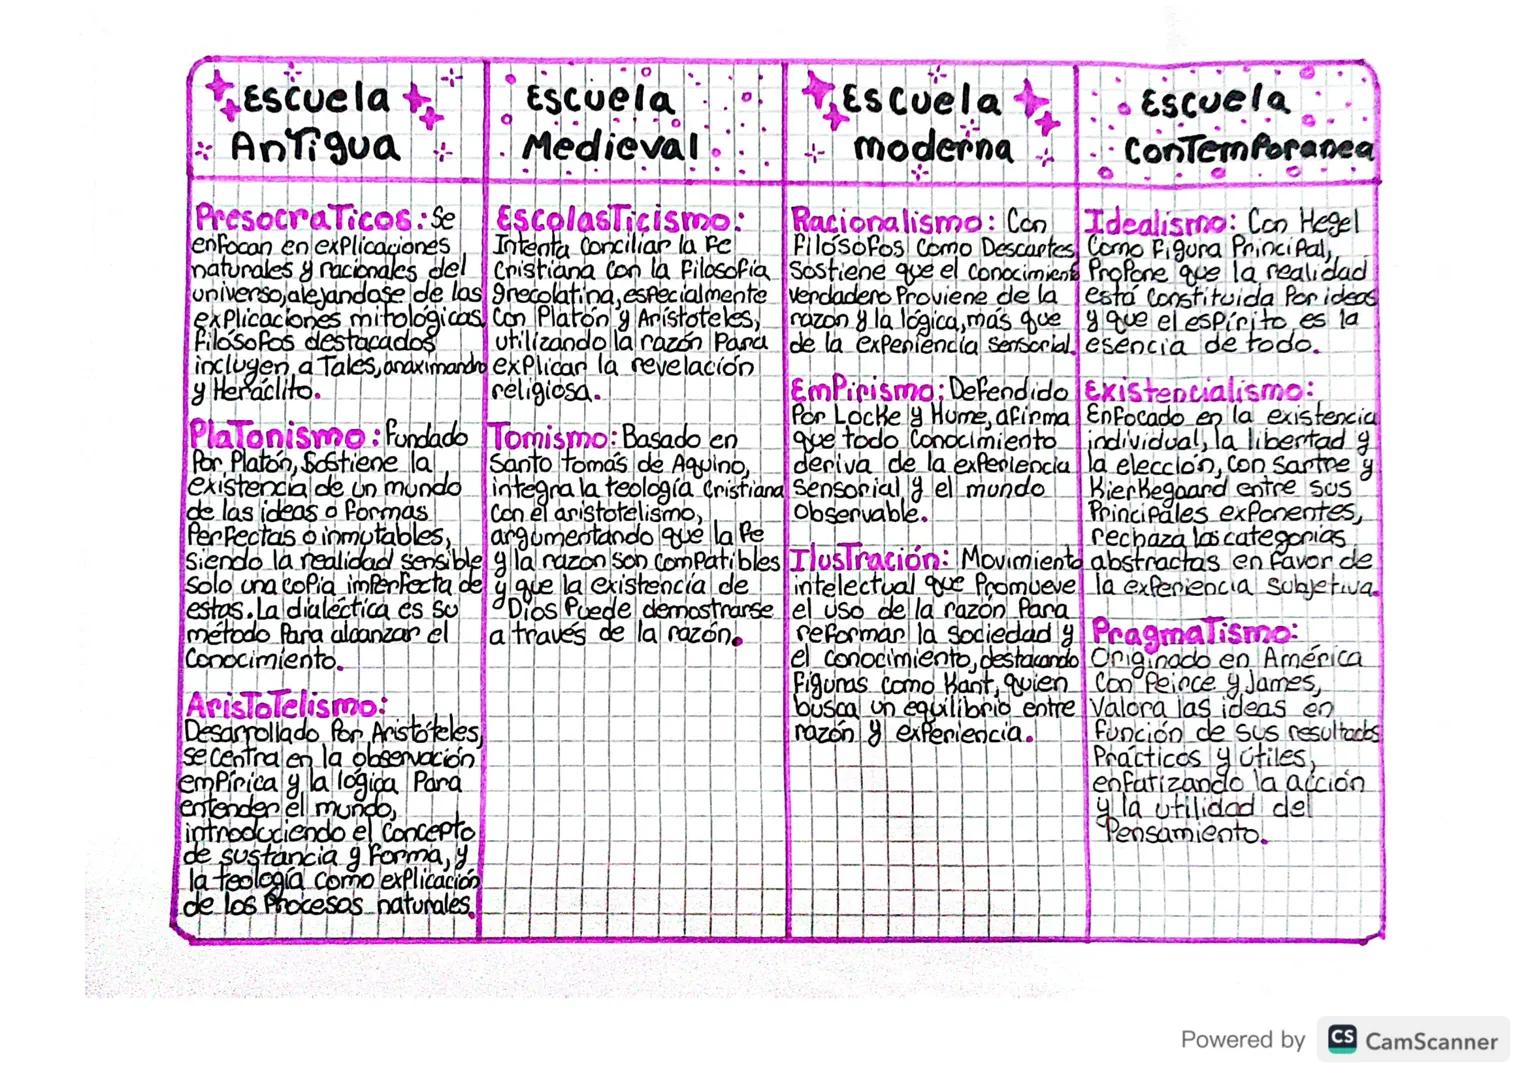 Escuela
Antigua
Presocraticos: Se
enfocan en explicaciones
naturales y racionales del
universo, alejandose de las
explicaciones mitológicas
filósofos destacados
incluyen a Tales, anaximandro
y Heráclito.
Platonismo: fundado
Por Platón, Sostiene la
existencia de un mundo
de las ideas o formas
Perfectas o inmutables,
siendo la realidad sensible
solo una copia imperfecta de
estas. La dialéctica es su
método Para alcanzar el
Conocimiento.
Aristotelismo:
Desarrollado Por Aristóteles,
se centra en la observación
empírica y la lógica Para
entender el mundo,
introduciendo el Concepto
de sustancia y forma, y
la teología como explicación
de los Procesos naturales.
Escuela
Medieval
Escolasticismo:
Intenta Conciliar la fe
Cristiana Con la filosofía
grecolatina, especialmente
Con Platón y Aristóteles,
utilizando la razón Para
explicar la revelación
religiosa.
Tomismo: Basado en
Santo tomás de Aquino,
integra la teología Cristiana
con el aristotelismo,
argumentando que la fe
y la razon son compatibles
y que la existencia de
Dios Puede demostrarse
a través de la razón.
Escuela
moderna
Racionalismo: Con
filósofos Como Descartes,
Sostiene que el conocimiento
verdadero Proviene de la
razon y la lógica, más que
de la experiencia sensorial.
Empirismo: Defendido
Por Locke y Hume, afirma
que todo Conocimiento
deriva de la experiencia
sensorial y el mundo
Observable.
Ilustración: Movimiento
intelectual que Promueve
el uso de la razón Para
reformar la sociedad y
el conocimiento, destacando
figuras como Kant, quien
busca un equilibrio entre
razón y experiencia.
Escuela
Contemporanea
Idealismo: Con Hegel
Como figura Principal,
Propone que la realidad
está Constituida Por ideas
y que el espíritu es la
esencia de todo.
Existencialismo:
Enfocado en la existencia
individual, la libertad y
la elección, con Sartre y
Kierkegaard entre sus
Principales exponentes,
rechaza las categorias
abstractas en favor de
la experiencia Subjetiva.
Pragmatismo:
Originado en América
Con Peirce y James,
valora las ideas en
función de sus resultados
Prácticos y útiles,
enfatizando la acción
y la utilidad del
Pensamiento.
Powered by CS CamScanner